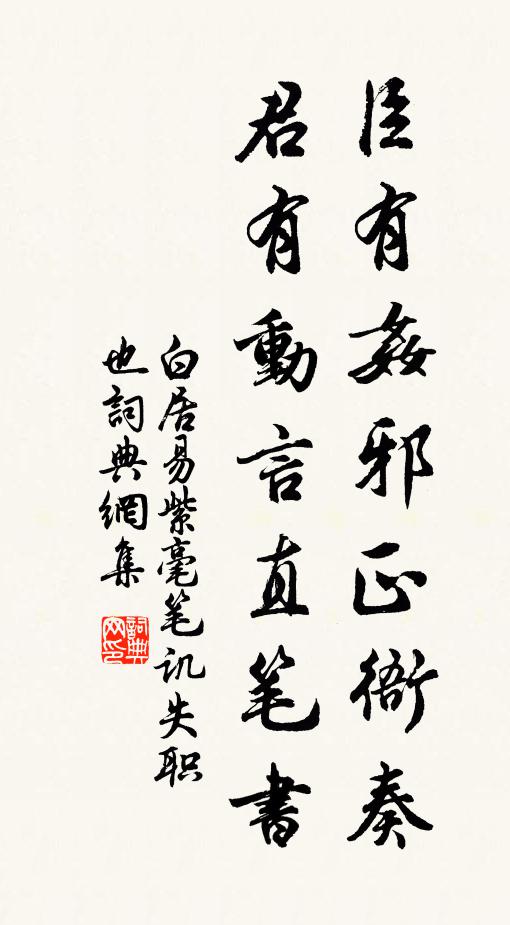 臣有姦邪正衙奏
君有動言直笔書
白居易紫毫笔讥失职
也詞典網集
詞典网印